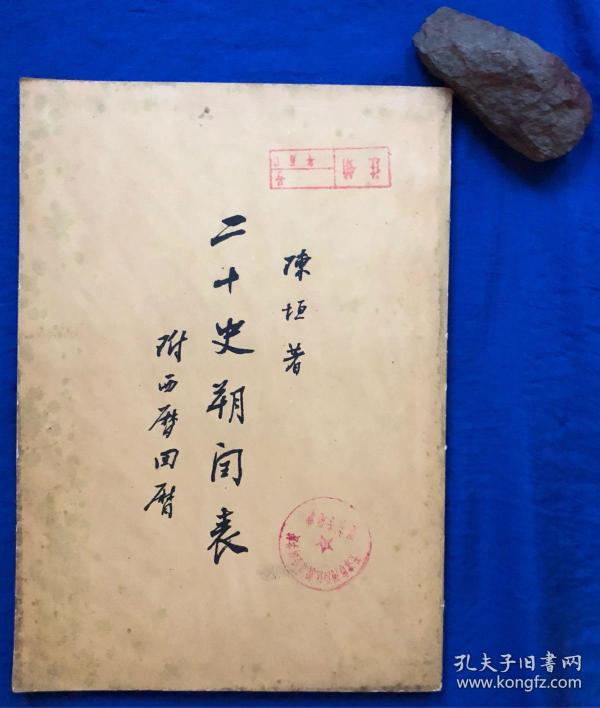 陳垣著
二十史朔閏表
附西曆回曆
注銷
年 月 日
孔夫子旧书网
www.kongfz.com